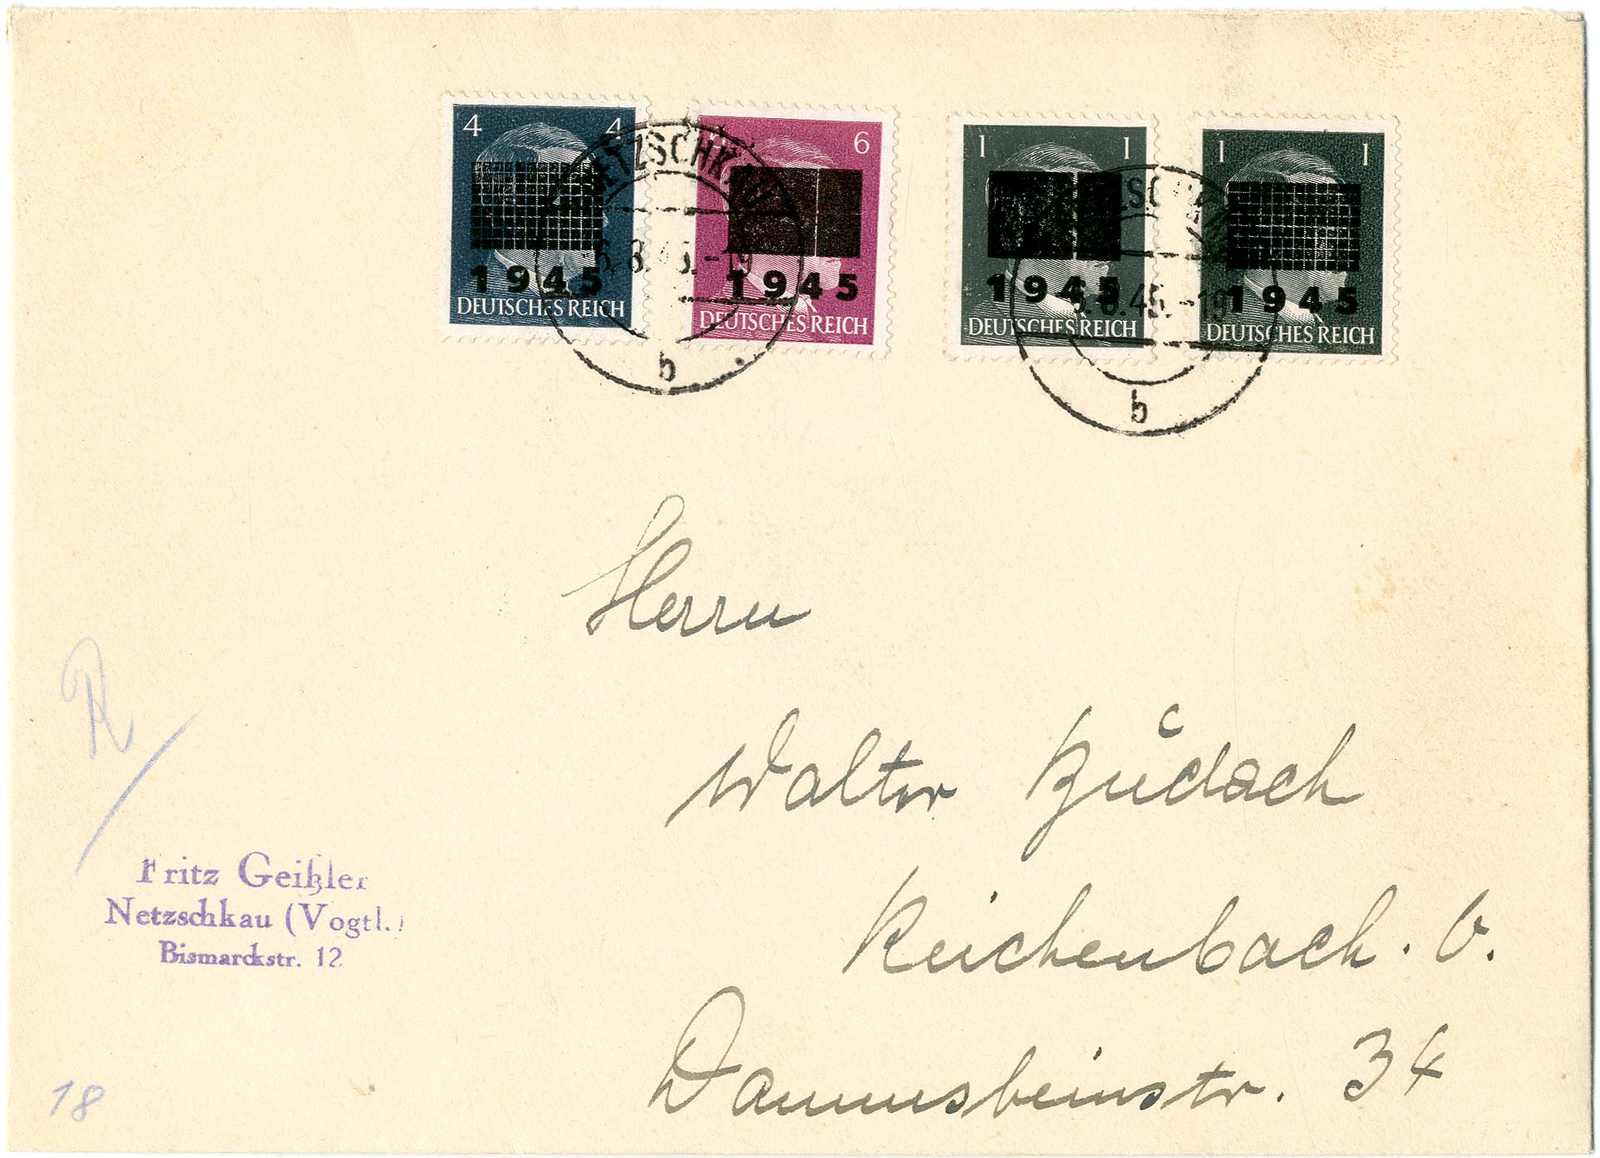 4 4
1945
DEUTSCHES REICH
6
1945
DEUTSCHES REICH
1 1
1945
DEUTSCHES REICH
1 1
1945
DEUTSCHES REICH
NETZSCHKAU
6.8.45.-19
b
6.8.45.-19
b
Herrn
Walter
Reichenbach. V.
34
R
Fritz Geißler
Netzschkau (Vogtl.)
Bismarckstr. 12
18